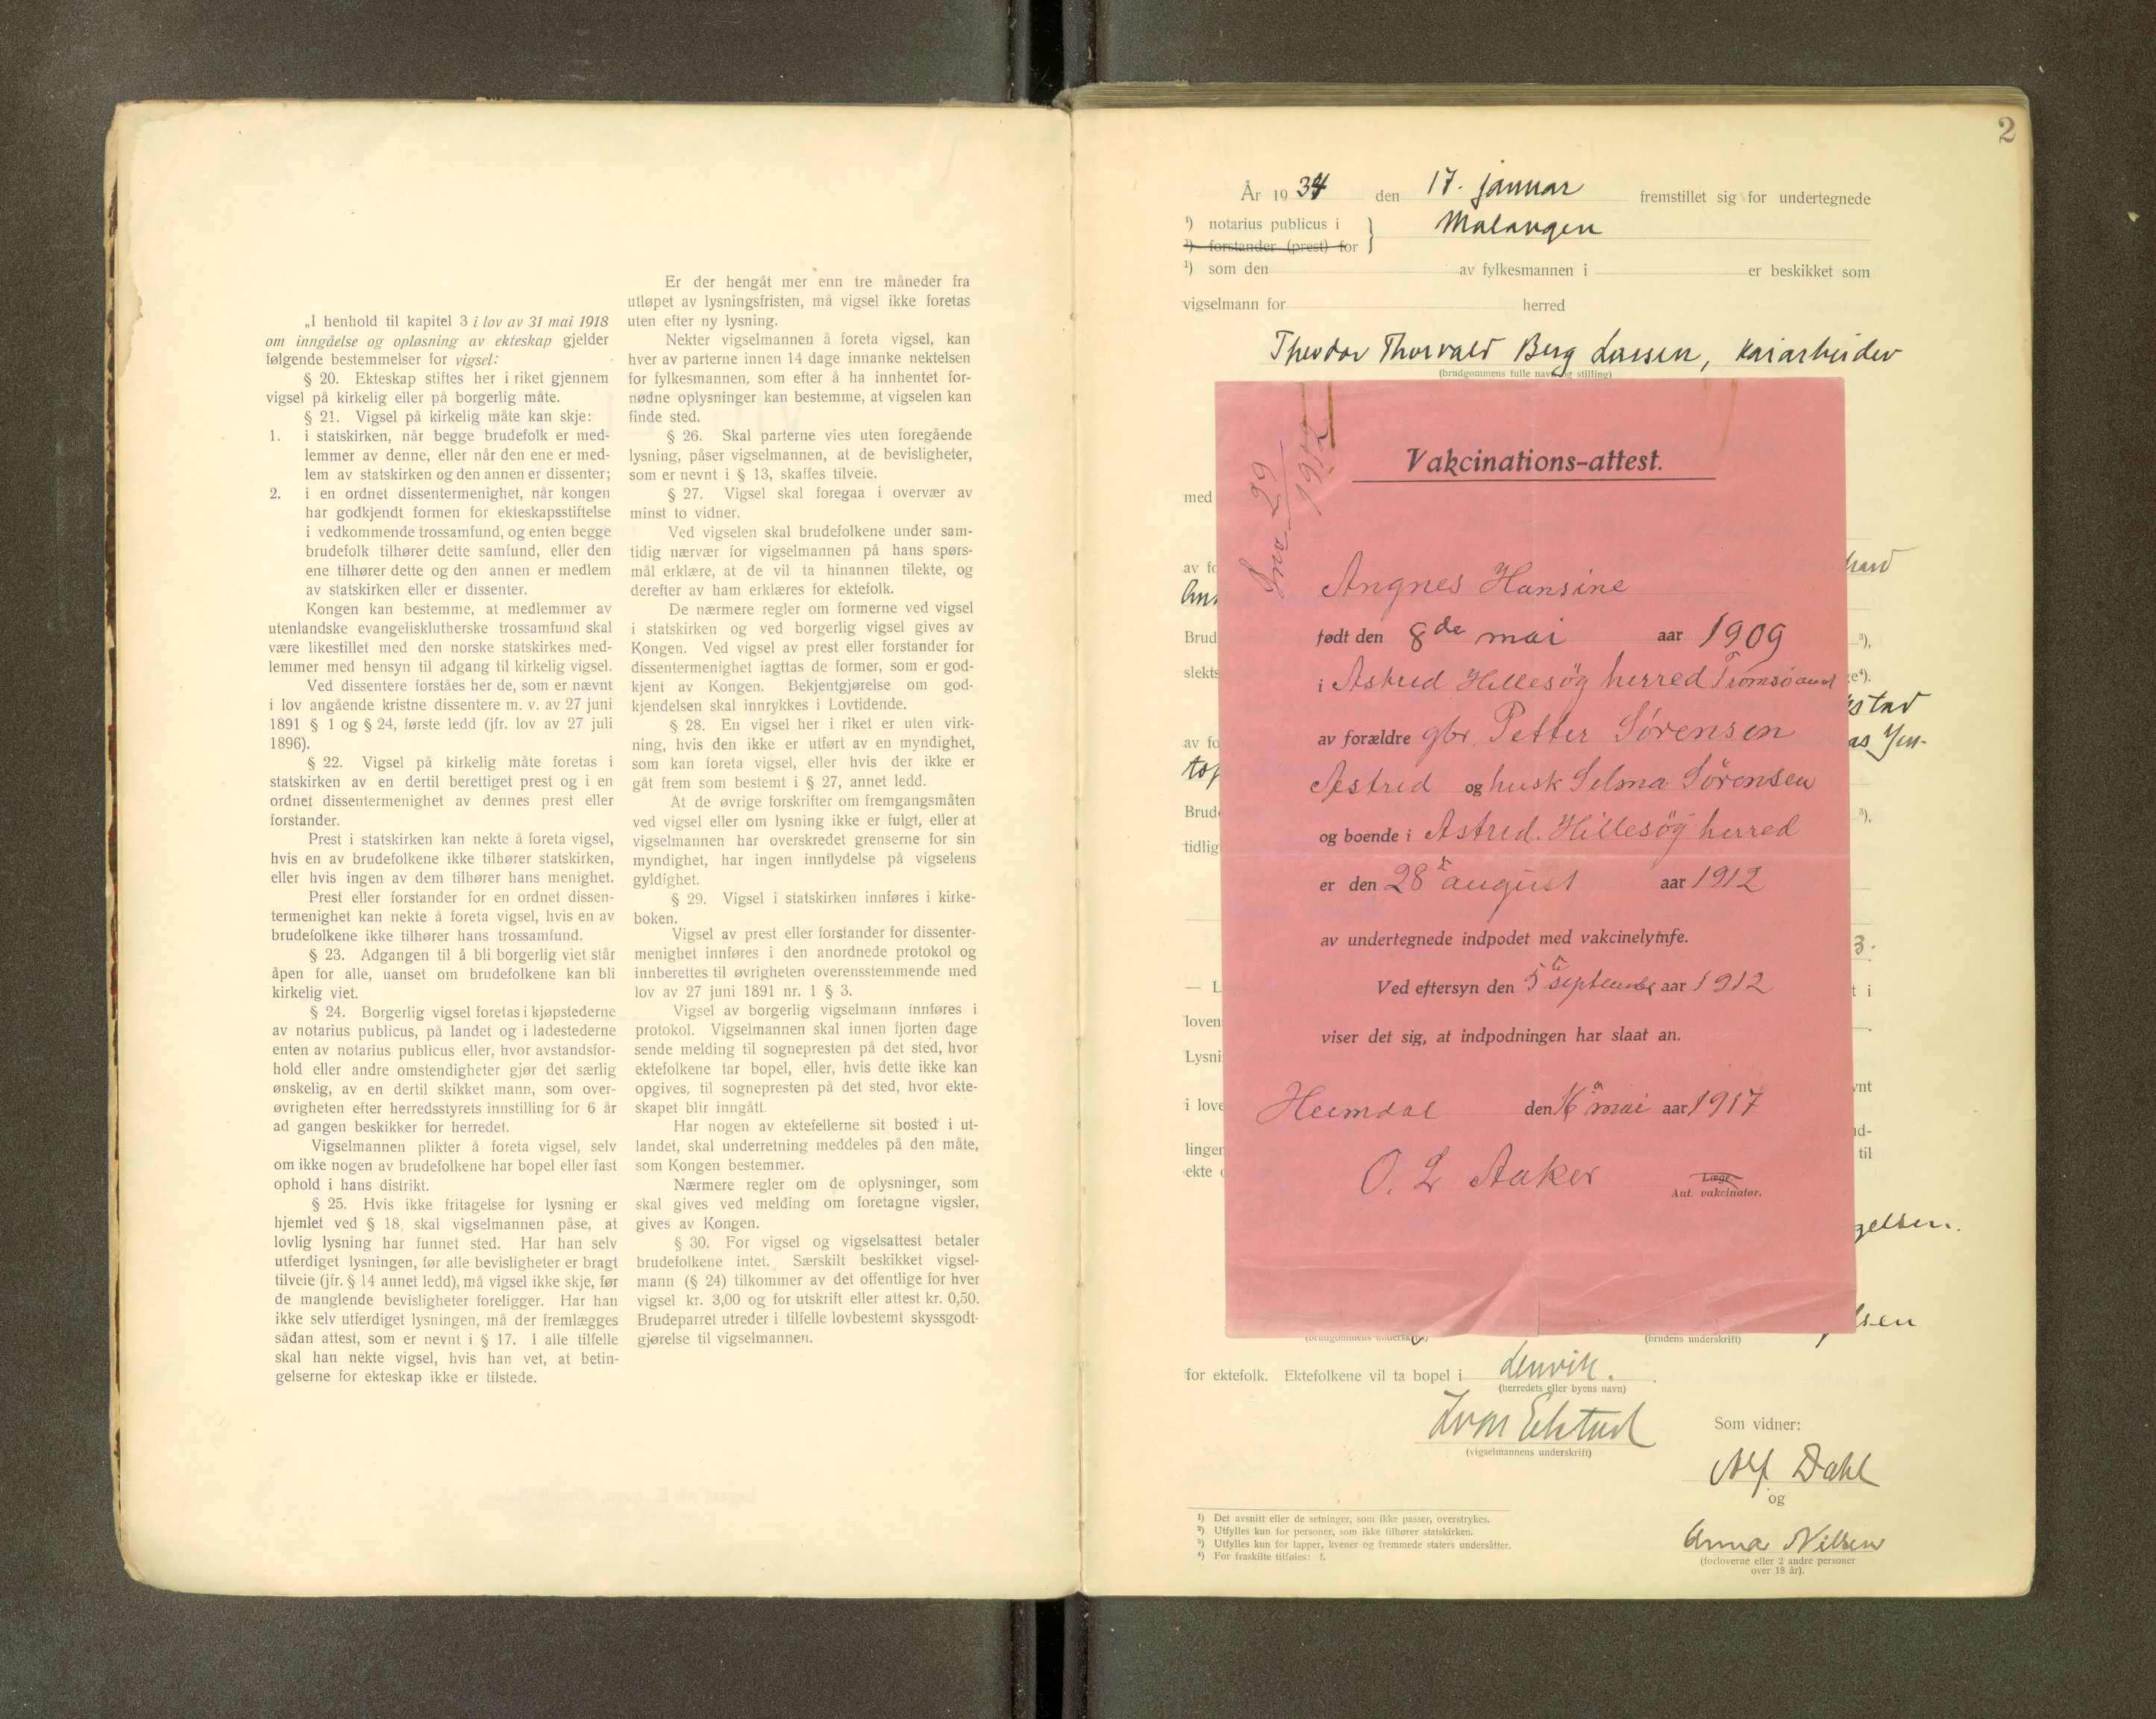 „I henhold til kapitel 3 i lov av 31 mai 1918
om inngåelse og opløsning av ekteskap gjelder
følgende bestemmelser for vigsel:
§ 20. Ekteskap stiftes her i riket gjennem
vigsel på kirkelig eller på borgerlig måte.
§ 21. Vigsel på kirkelig måte kan skje:
1. i statskirken, når begge brudefolk er med-
lemmer av denne, eller når den ene er med-
lem av statskirken og den annen er dissenter;
2. i en ordnet dissentermenighet, når kongen
har godkjendt formen for ekteskapsstiftelse
i vedkommende trossamfund, og enten begge
brudefolk tilhører dette samfund, eller den
ene tilhører dette og den annen er medlem
av statskirken eller er dissenter.
Kongen kan bestemme, at medlemmer av
utenlandske evangelisklutherske trossamfund skal
være likestillet med den norske statskirkes med-
lemmer med hensyn til adgang til kirkelig vigsel.
Ved dissentere forståes her de, som er nævnt
i lov angående kristne dissentere m. v. av 27 juni
1891 § 1 og § 24, første ledd (jfr. lov av 27 juli
1896).
§ 22. Vigsel på kirkelig måte foretas i
statskirken av en dertil berettiget prest og i en
ordnet dissentermenighet av dennes prest eller
forstander.
Prest i statskirken kan nekte å foreta vigsel,
hvis en av brudefolkene ikke tilhører statskirken,
eller hvis ingen av dem tilhører hans menighet.
Prest eller forstander for en ordnet dissen-
termenighet kan nekte å foreta vigsel, hvis en av
brudefolkene ikke tilhører hans trossamfund.
§ 23. Adgangen til å bli borgerlig viet står
åpen for alle, uanset om brudefolkene kan bli
kirkelig viet.
§ 24. Borgerlig vigsel foretas i kjøpstederne
av notarius publicus, på landet og i ladestederne
enten av notarius publicus eller, hvor avstandsfor-
hold eller andre omstendigheter gjør det særlig
ønskelig, av en dertil skikket mann, som over-
øvrigheten efter herredsstyrets innstilling for 6 år
ad gangen beskikker for herredet.
Vigselmannen plikter å foreta vigsel, selv
om ikke nogen av brudefolkene har bopel eller fast
ophold i hans distrikt.
§ 25. Hvis ikke fritagelse for lysning er
hjemlet ved § 18, skal vigselmannen påse, at
lovlig lysning har funnet sted. Har han selv
utferdiget lysningen, før alle bevisligheter er bragt
tilveie (jfr. § 14 annet ledd), må vigsel ikke skje, før
de manglende bevisligheter foreligger. Har han
ikke selv utferdiget lysningen, må der fremlægges
sådan attest, som er nevnt i § 17. I alle tilfelle
skal han nekte vigsel, hvis han vet, at betin-
gelserne for ekteskap ikke er tilstede.
Er der hengåt mer enn tre måneder fra
utløpet av lysningsfristen, må vigsel ikke foretas
uten efter ny lysning.
Nekter vigselmannen å foreta vigsel, kan
hver av parterne innen 14 dage innanke nektelsen
for fylkesmannen, som efter å ha innhentet for-
nødne oplysninger kan bestemme, at vigselen kan
finde sted.
§ 26. Skal parterne vies uten foregående
lysning, påser vigselmannen, at de bevisligheter,
som er nevnt i § 13, skaffes tilveie.
§ 27. Vigsel skal foregaa i overvær av
minst to vidner.
Ved vigselen skal brudefolkene under sam-
tidig nærvær for vigselmannen på hans spørs-
mål erklære, at de vil ta hinannen tilekte, og
derefter av ham erklæres for ektefolk.
De nærmere regler om formerne ved vigsel
i statskirken og ved borgerlig vigsel gives av
Kongen. Ved vigsel av prest eller forstander for
dissentermenighet iagttas de former, som er god-
kjent av Kongen. Bekjentgjørelse om god-
kjendelsen skal innrykkes i Lovtidende.
§ 28. En vigsel her i riket er uten virk-
ning, hvis den ikke er utført av en myndighet,
som kan foreta vigsel, eller hvis der ikke er
gåt frem som bestemt i § 27, annet ledd.
At de øvrige forskrifter om fremgangsmåten
ved vigsel eller om lysning ikke er fulgt, eller at
vigselmannen har overskredet grenserne for sin
myndighet, har ingen innflydelse på vigselens
gyldighet.
§ 29. Vigsel i statskirken innføres i kirke-
boken.
Vigsel av prest eller forstander for dissenter-
menighet innføres i den anordnede protokol og
innberettes til øvrigheten overensstemmende med
lov av 27 juni 1891 nr. 1 § 3.
Vigsel av borgerlig vigselmann innføres i
protokol. Vigselmannen skal innen fjorten dage
sende melding til sognepresten på det sted, hvor
ektefolkene tar bopel, eller, hvis dette ikke kan
opgives, til sognepresten på det sted, hvor ekte-
skapet blir inngått.
Har nogen av ektefellerne sit bosted i ut-
landet, skal underretning meddeles på den måte,
som Kongen bestemmer.
Nærmere regler om de oplysninger, som
skal gives ved melding om foretagne vigsler,
gives av Kongen.
§ 30. For vigsel og vigselsattest betaler
brudefolkene intet. Særskilt beskikket vigsel-
mann (§ 24) tilkommer av det offentlige for hver
vigsel kr. 3,00 og for utskrift eller attest kr. 0,50.
Brudeparret utreder i tilfelle lovbestemt skyssgodt-
gjørelse til vigselmannen.
2
År 1934 den 17. januar fremstillet sig for undertegnede
¹) notarius publicus i } Malangen
¹) forstander (prest) for
¹) som den av fylkesmannen i er beskikket som
vigselmann for herred
Theodor Thorvald Berg Lassen, kaiarbeider
(brudgommens fulle navn og stilling)
med
av fo
Brud ³),
slekts ge⁴).
av fo
Brude ³),
tidlig
3.
— L t i
loven
Lysni
i love vnt
linger
ekte til
gelsen.
lsen
Vakcinations-attest.
29
1912
Angnes Hansine
født den 8de mai aar 1909
i Astrid Hillesöy herred Tromsö amt
av forældre gbr. Petter Sørensen
Astrid og husk Selma Sørensen
og boende i Astrid. Hillesöy herred
er den 28 august aar 1912
av undertegnede indpodet med vakcinelymfe.
Ved eftersyn den 5 september aar 1912
viser det sig, at indpodningen har slaat an.
Heimdal den 16 mai aar 1917
O. L Aaker
Læge.
Aut. vakcinatør.
(brudgommens underskrift) (brudens underskrift)
for ektefolk. Ektefolkene vil ta bopel i Lenvik.
(herredets eller byens navn)
(vigselmannens underskrift)
Som vidner:
Alf Dahl
og
Anna Nilsen
(forloverne eller 2 andre personer
over 18 år).
¹) Det avsnitt eller de setninger, som ikke passer, overstrykes.
²) Utfylles kun for personer, som ikke tilhører statskirken.
³) Utfylles kun for lapper, kvener og fremmede staters undersåtter.
⁴) For fraskilte tilføies: f.